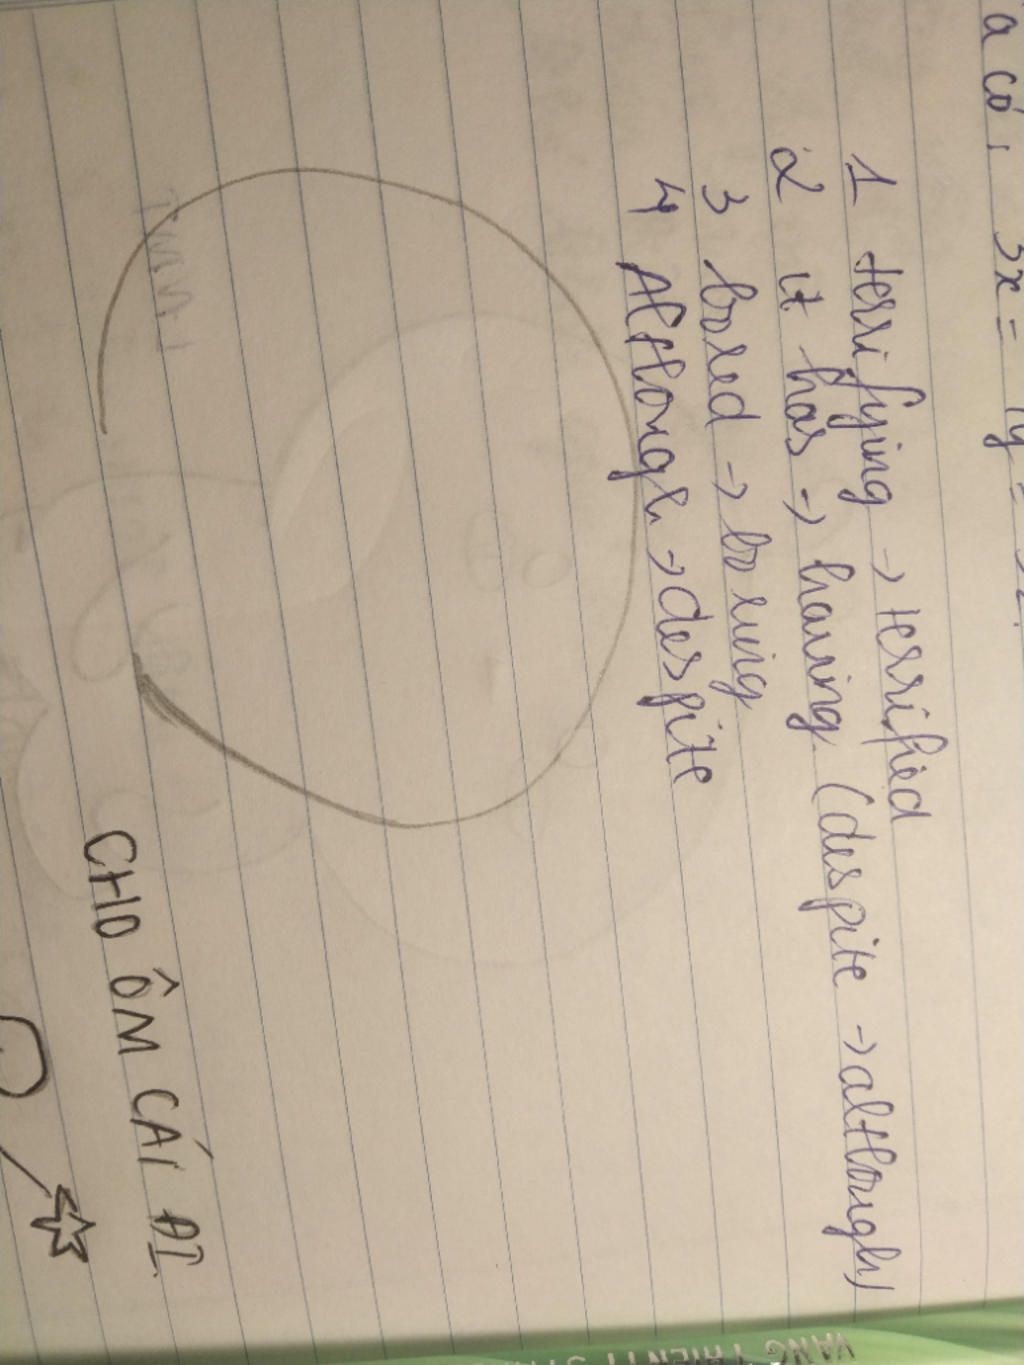 a có:   3x =
1 terrifying -> terrified
2 it has -> having (despite -> although)
3 bored -> boring
4 Although -> despite
CHO ÔM CÁI ĐI.